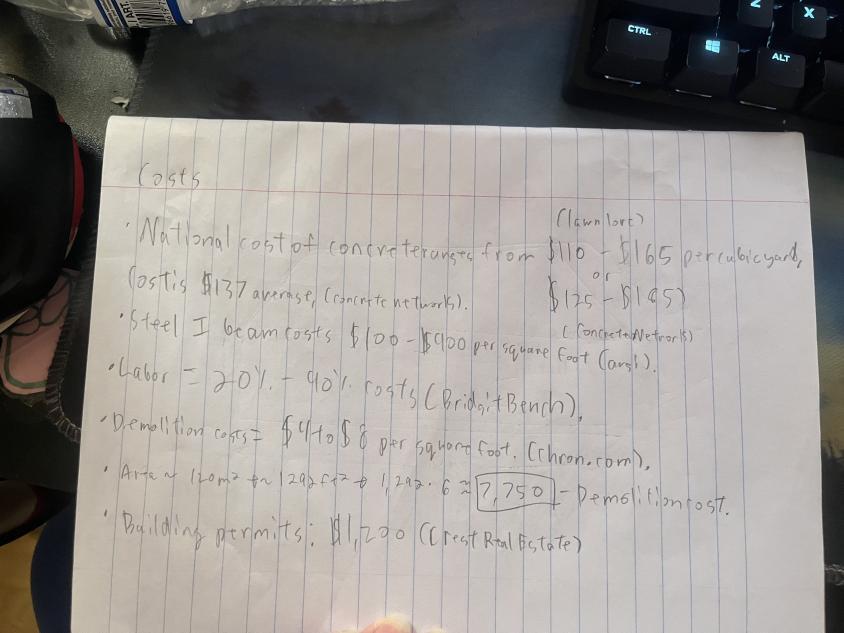 Z
X
CTRL
ALT
Costs
(lawnlove)
· National cost of concrete ranges from $110 - $165 per cubic yard,
or
Cost is $137 average, (concrete network).
$125 - $165)
(ConcreteNetwork)
· Steel I beam costs $100 - $400 per square foot
· Labor = 20% - 40% costs (BridgitBench),
· Demolition costs = $4 to $8 per square foot. (chron.com).
· Area ≈ 120m² → 1292ft² → 1,292 · 6 ≈ 7,750 = Demolition cost.
· Building permits: $1,200 (Crest Real Estate)